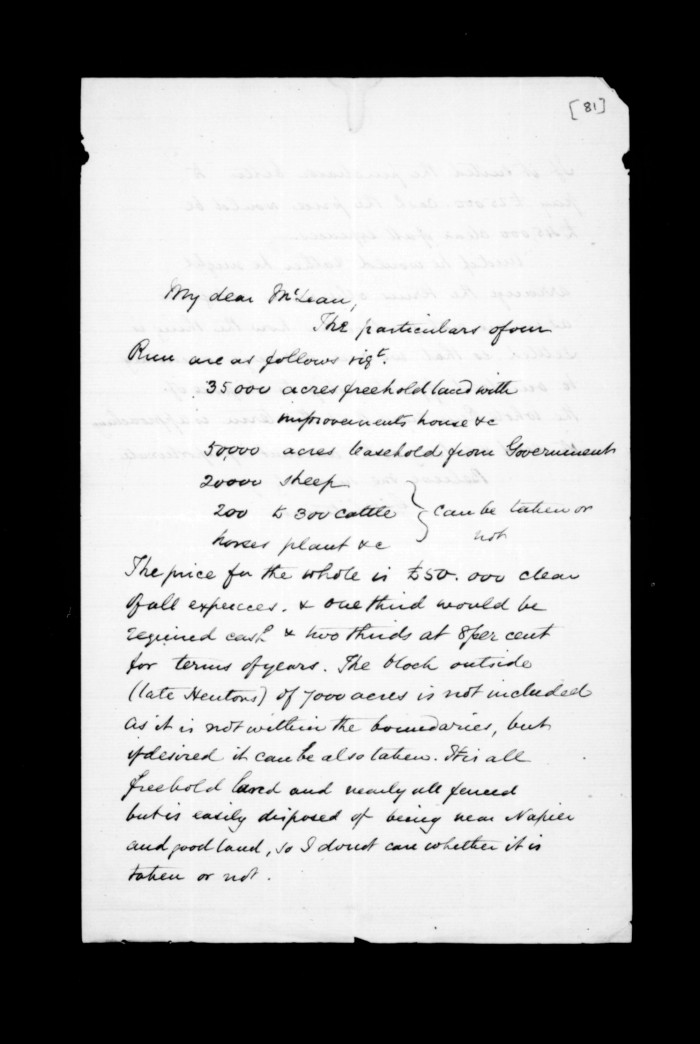 [81]
My dear McLean,
The particulars of our
Run are as follows vizt.
35,000 acres freehold land with
improvements house &c
50,000 acres leasehold from Government
20000 sheep
200 to 300 cattle } can be taken or
horses plant &c not
The price for the whole is £50.000 clear
of all expences. & one third would be
required cash & two thirds at 8 per cent
for terms of years. The block outside
(late Heutons) of 7000 acres is not included
as it is not within the boundaries, but
if desired it can be also taken. It is all
freehold land and nearly all fenced
but is easily disposed of being near Napier
and good land, so I do not care whether it is
taken or not.